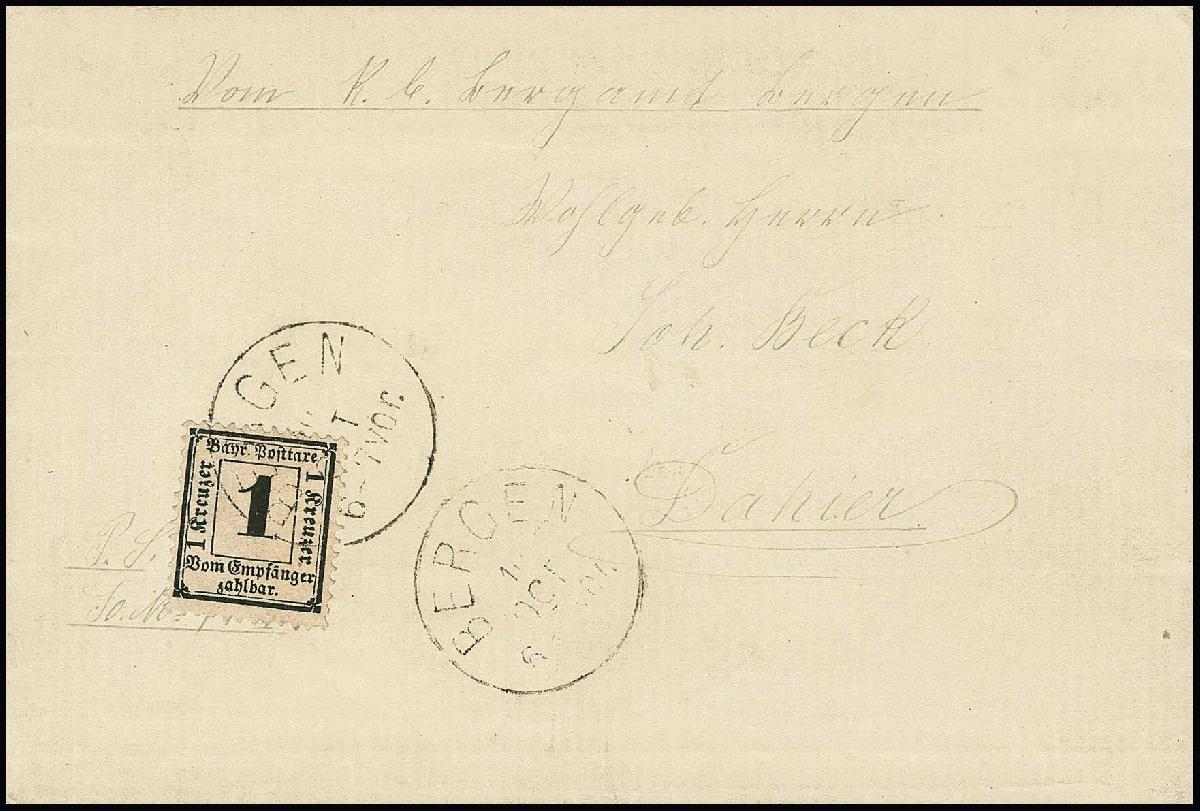 Vom K. b. Bergamt Bergen
Wohlgeb. Herrn
Joh. Beck
Dahier.
GEN
T
6-7 VOR.
Bayr. Posttaxe
1 Kreuzer
1
1 Kreuzer
Vom Empfänger
zahlbar.
P. S.
BERGEN
OCT